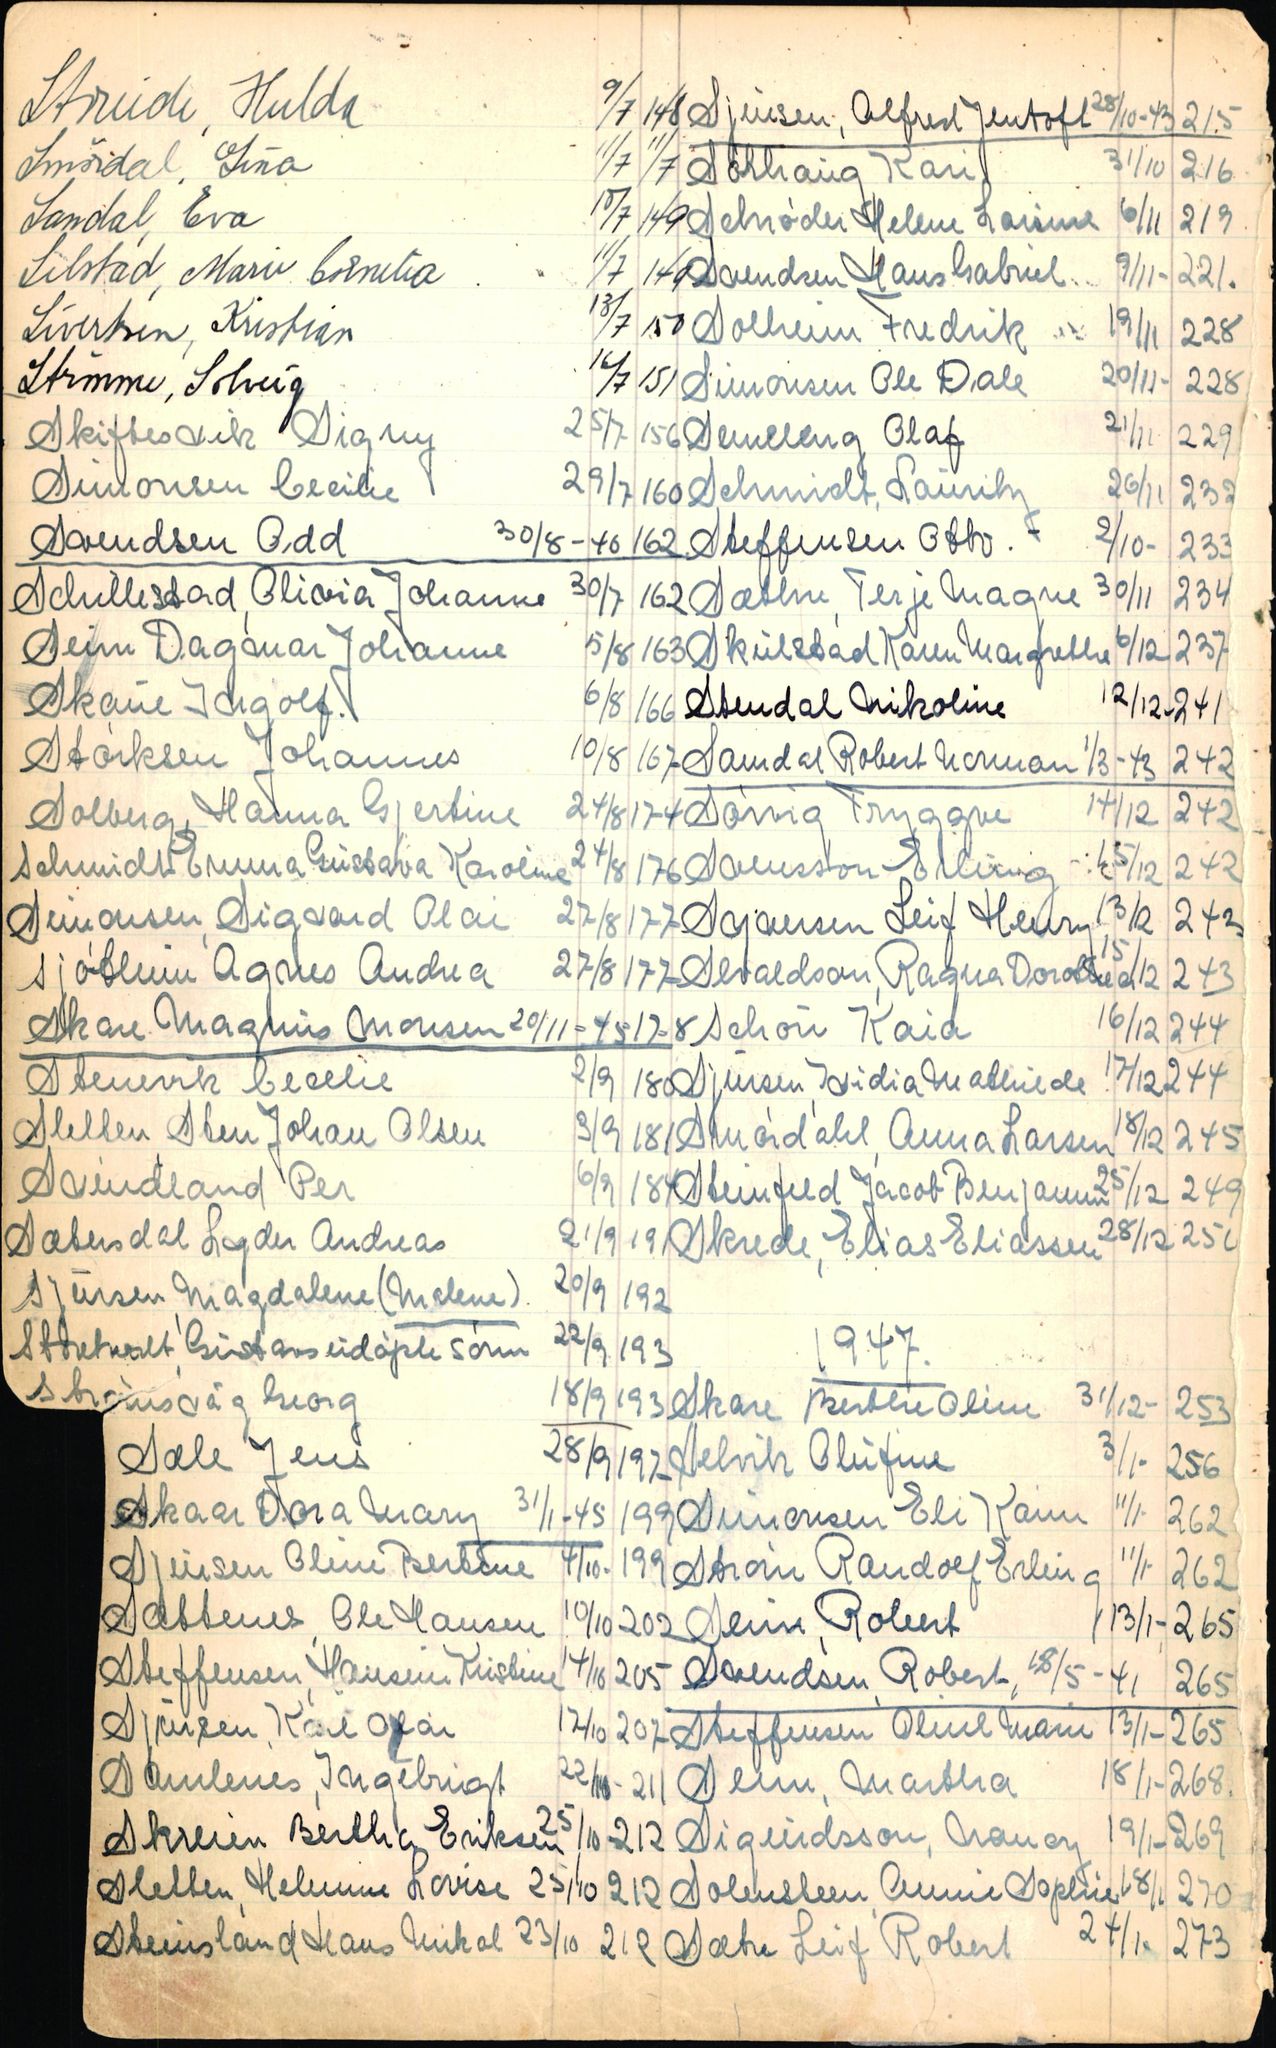 Streide, Hulda 9/7 148
Smördal, Gina 11/7 11/7
Sandal, Eva 10/7 149
Silstad, Marie 11/7 149
Sivertsen, Kristian 13/7 150
Strömme, Solveig 16/7 151
Skiftesvik Signy 25/7 156
Simonsen Cecilie 29/7 160
Svendsen Odd 30/8-40 162
Schillestad, Olivia Johanne 30/7 162
Seim Dagmar Johanne 5/8 163
Skaue Ingolf. 6/8 166
Störksen Johannes 10/8 167
Solberg, Hanna Gjertine 24/8 174
Schmidt Emma Gustava Karoline 24/8 176
Simonsen, Sigvard Olai 27/8 177
Sjöthun Agnes Andrea 27/8 177
Skare Magnus Monsen 20/11-45 178
Stenevik Cecelie 2/9 180
Sletten, Sten Johan Olsen 3/9 181
Svindland Per 6/9 184
Sætersdal Lyder Andreas 21/9 191
Sjursen, Magdalene (Malene). 20/9 192
Gustavs udöpte sönn 22/9 193
Straumsvåg Georg 18/9 193
Sæle Jens 28/9 197
Skaar Dora Mary 31/1-45 199
Sjursen Oline Bertine 4/10- 199
Sættenes, Ole Hansen 10/10 202
Steffensen, Hansine Kristine 14/10 205
Sjursen, Kåre Olai 17/10 207
Samlenes, Ingebrigt 22/10- 211
Skreien Bertha Eriksen 25/10-212
Sletten, Helmine Lovise 25/10 212
Steinsland Hans Nikol 23/10 212
Sjursen, Alfred Jentoft 28/10-43 215
Sölhaug Kari 31/10 216
Schröder Helene Lovise 6/11 219
Svendsen Hans Gabriel 9/11- 221.
Solheim Fredrik 19/11 228
Simonsen Ole Dale 20/11- 228
Semelleng Olaf 21/11 229
Schmidt, Lauritz 26/11 232
Steffensen Otto. 2/10- 233
Sæthre, Terje Magne 30/11 234
Skulstad Karen Margrethe 6/12 237
Stendal Nikoline 12/12-241
Samdal Robert Norman 1/3-43 242
Sörvig Tryggve 14/12 242
Svensson Elling 15/12 242
Sojversen Leif Henry 13/12 243
Sevaldson, Ragna Dorothea 15/12 243
Schön Kaia 16/12 244
Sjursen, Ovidia Mathilde 17/12 244
Smördahl, Anna Larsen 18/12 245
Steinfeld Jacob Benjamin 25/12 249
Skrede, Elias Eliassen 28/12 251
1947.
Skare Berthe Oline 31/12- 253
Selvik Olufine 3/1- 256
Simonsen Eli Karin 11/1- 262
Ström Randolf Erling 11/1- 262
Seim, Robert 13/1-265
Svendsen, Robert, 18/5-41 265
Steffensen Oline Marie 13/1-265
Seim, Martha 18/1-268.
Sigurdsson, Nancy 19/1-269
Solensteen, Annie Sophie 18/1 270
Sætre Leif Robert 24/1- 273